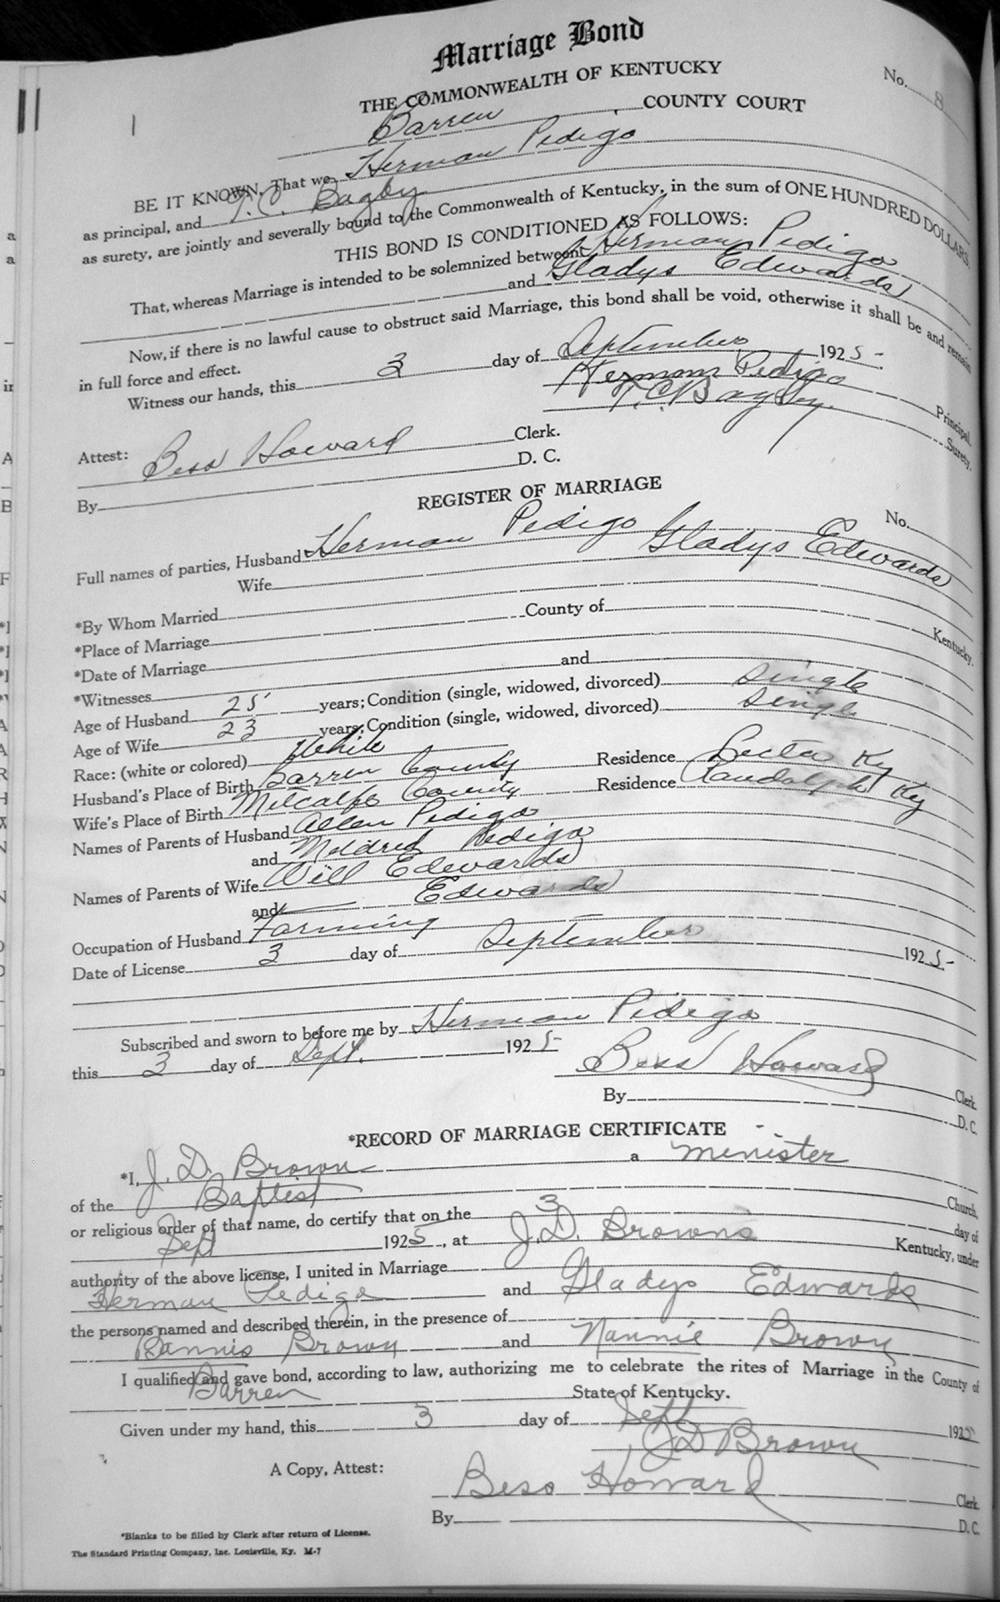 Marriage Bond
THE COMMONWEALTH OF KENTUCKY
No. 8
Barren COUNTY COURT
BE IT KNOWN, That we, Herman Pedigo
as principal, and T.C. Bagby
as surety, are jointly and severally bound to the Commonwealth of Kentucky, in the sum of ONE HUNDRED DOLLARS.
THIS BOND IS CONDITIONED AS FOLLOWS:
That, whereas Marriage is intended to be solemnized between Herman Pedigo
and Gladys Edwards
Now, if there is no lawful cause to obstruct said Marriage, this bond shall be void, otherwise it shall be and remain
in full force and effect.
Witness our hands, this 3 day of September 1925-
Herman Pedigo Principal.
T.C. Bagby Surety.
Attest: Bess Howard Clerk.
By D. C.
REGISTER OF MARRIAGE
No.
Full names of parties, Husband Herman Pedigo
Wife Gladys Edwards
*By Whom Married
*Place of Marriage County of Kentucky.
*Date of Marriage
*Witnesses and
Age of Husband 25 years; Condition (single, widowed, divorced) Single
Age of Wife 23 years; Condition (single, widowed, divorced) Single
Race: (white or colored) White
Husband's Place of Birth Barren County Residence Lecta Ky
Wife's Place of Birth Metcalfe County Residence Randolph Ky
Names of Parents of Husband Allen Pedigo
and Mildred Pedigo
Names of Parents of Wife Will Edwards
and Edwards
Occupation of Husband Farming
Date of License 3 day of September 1925-
Subscribed and sworn to before me by Herman Pedigo
this 3 day of Sept. 1925-
Bess Howard Clerk.
By D. C.
*RECORD OF MARRIAGE CERTIFICATE
*I, J. D. Brown a minister
of the Baptist Church,
or religious order of that name, do certify that on the 3 day of
Sept 1925, at J.D. Brown's Kentucky, under
authority of the above license, I united in Marriage
Herman Pedigo and Gladys Edwards
the persons named and described therein, in the presence of
Bannis Brown and Nannie Brown
I qualified and gave bond, according to law, authorizing me to celebrate the rites of Marriage in the County of
Barren State of Kentucky.
Given under my hand, this 3 day of Sept 1925
J D Brown
A Copy, Attest: Bess Howard Clerk
By D. C.
*Blanks to be filled by Clerk after return of License.
The Standard Printing Company, Inc. Louisville, Ky. M-7